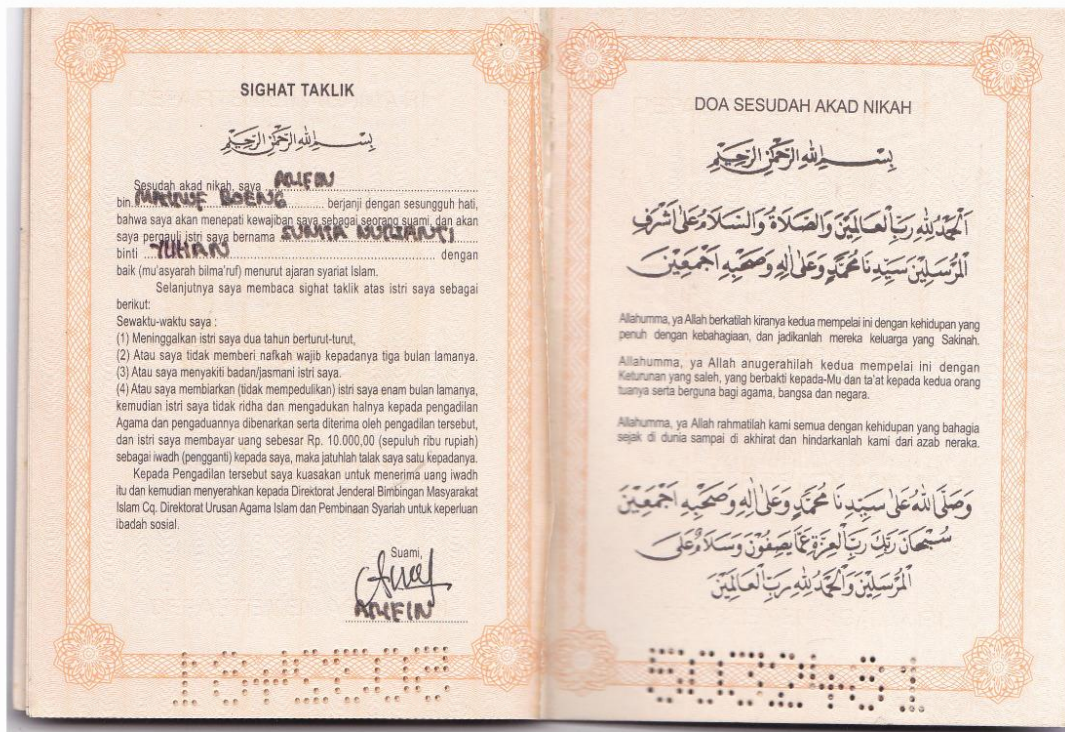 SIGHAT TAKLIK
بِسْــــمِ اللهِ الرَّحْمٰنِ الرَّحِيْمِ
Sesudah akad nikah, saya ARIFIN
bin MAKRUF BOENG berjanji dengan sesungguh hati,
bahwa saya akan menepati kewajiban saya sebagai seorang suami, dan akan
saya pergauli istri saya bernama SUNITA NURYANTI
binti YUHAN dengan
baik (mu'asyarah bilma'ruf) menurut ajaran syariat Islam.
Selanjutnya saya membaca sighat taklik atas istri saya sebagai
berikut:
Sewaktu-waktu saya :
(1) Meninggalkan istri saya dua tahun berturut-turut,
(2) Atau saya tidak memberi nafkah wajib kepadanya tiga bulan lamanya.
(3) Atau saya menyakiti badan/jasmani istri saya.
(4) Atau saya membiarkan (tidak mempedulikan) istri saya enam bulan lamanya,
kemudian istri saya tidak ridha dan mengadukan halnya kepada pengadilan
Agama dan pengaduannya dibenarkan serta diterima oleh pengadilan tersebut,
dan istri saya membayar uang sebesar Rp. 10.000,00 (sepuluh ribu rupiah)
sebagai iwadh (pengganti) kepada saya, maka jatuhlah talak saya satu kepadanya.
Kepada Pengadilan tersebut saya kuasakan untuk menerima uang iwadh
itu dan kemudian menyerahkan kepada Direktorat Jenderal Bimbingan Masyarakat
Islam Cq. Direktorat Urusan Agama Islam dan Pembinaan Syariah untuk keperluan
ibadah sosial.
Suami,
ARIFIN
DOA SESUDAH AKAD NIKAH
بِسْــــمِ اللهِ الرَّحْمٰنِ الرَّحِيْمِ
اَلْحَمْدُ لِلّٰهِ رَبِّ الْعَالَمِيْنَ وَالصَّلَاةُ وَالسَّلَامُ عَلٰى اَشْرَفِ
الْمُرْسَلِيْنَ سَيِّدِنَا مُحَمَّدٍ وَعَلٰى اٰلِهِ وَصَحْبِهِ اَجْمَعِيْنَ
Allahumma, ya Allah berkatilah kiranya kedua mempelai ini dengan kehidupan yang
penuh dengan kebahagiaan, dan jadikanlah mereka keluarga yang Sakinah.
Allahumma, ya Allah anugerahilah kedua mempelai ini dengan
Keturunan yang saleh, yang berbakti kepada-Mu dan ta'at kepada kedua orang
tuanya serta berguna bagi agama, bangsa dan negara.
Allahumma, ya Allah rahmatilah kami semua dengan kehidupan yang bahagia
sejak di dunia sampai di akhirat dan hindarkanlah kami dari azab neraka.
وَصَلَّى اللهُ عَلٰى سَيِّدِنَا مُحَمَّدٍ وَعَلٰى اٰلِهِ وَصَحْبِهِ اَجْمَعِيْنَ
سُبْحَانَ رَبِّكَ رَبِّ الْعِزَّةِ عَمَّا يَصِفُوْنَ وَسَلَامٌ عَلَى
الْمُرْسَلِيْنَ وَالْحَمْدُ لِلّٰهِ رَبِّ الْعَالَمِيْنَ